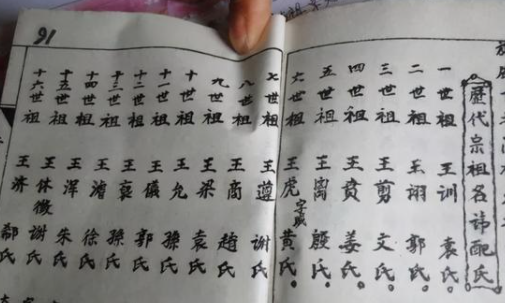 歷代宗祖名諱配氏
一世祖 王训 袁氏
二世祖 王翊 郭氏
三世祖 王剪 文氏
四世祖 王贲 姜氏
五世祖 王离 殷氏
六世祖 王虎 黄氏
七世祖 王遵 谢氏
八世祖 王商 赵氏
九世祖 王梁 袁氏
十世祖 王允 孫氏
十一世祖 王儀 郭氏
十二世祖 王裒 孫氏
十三世祖 王濬 徐氏
十四世祖 王渾 朱氏
十五世祖 王休徵 謝氏
十六世祖 王济 郗氏
91